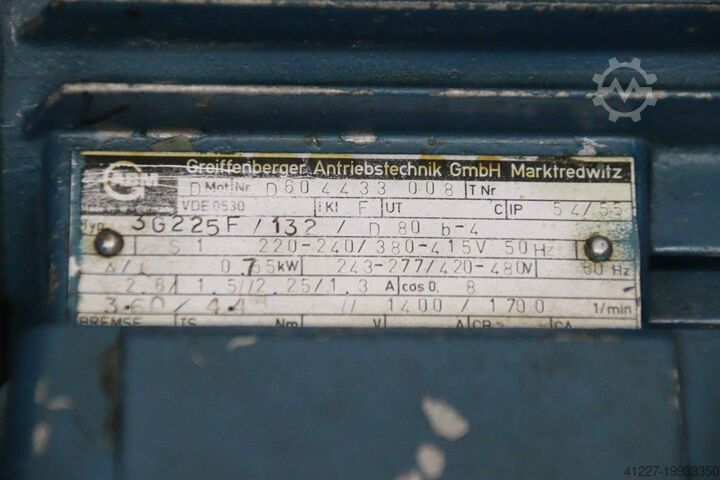 Greiffenberger Antriebstechnik GmbH Marktredwitz
D Mot Nr D604433 008 T Nr
VDE 0530 I KI F UT C IP 54/55
Typ 3G225F/132 / D 80 b-4
S 1 220-240/380-415V 50 Hz
0.75 kW 243-277/420-480V 60 Hz
2.6/ 1.5//2.25/1.3 A cos 0, 8
// 1400/1700 1/min
BREMSE TS Nm V A CR CA
41227-19933350